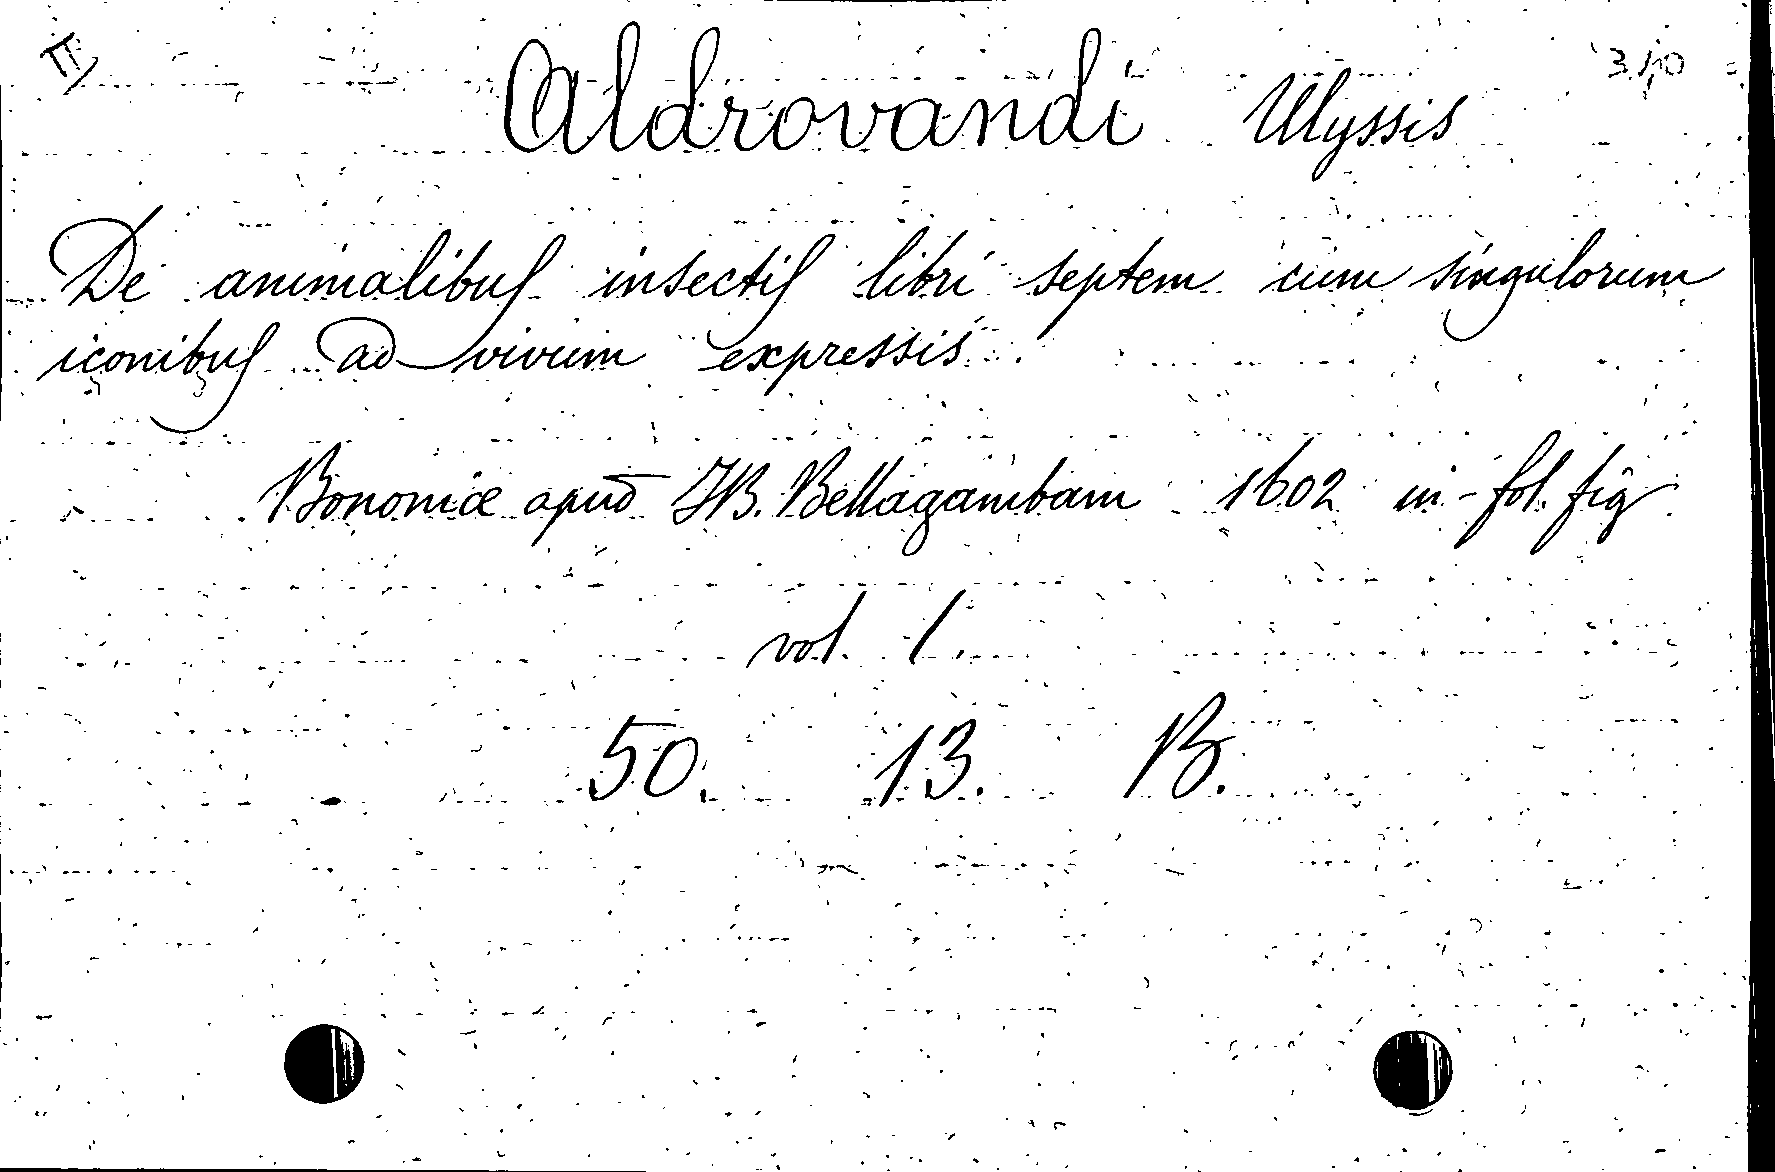 II
Aldrovandi Ulyssis
De animalibus insectis libri septem cum singulorum
iconibus ad vivum expressis.
Bononiæ apud JB. Bellagambam 1602 in-fol. fig
vol. 1.
50. 13. B.